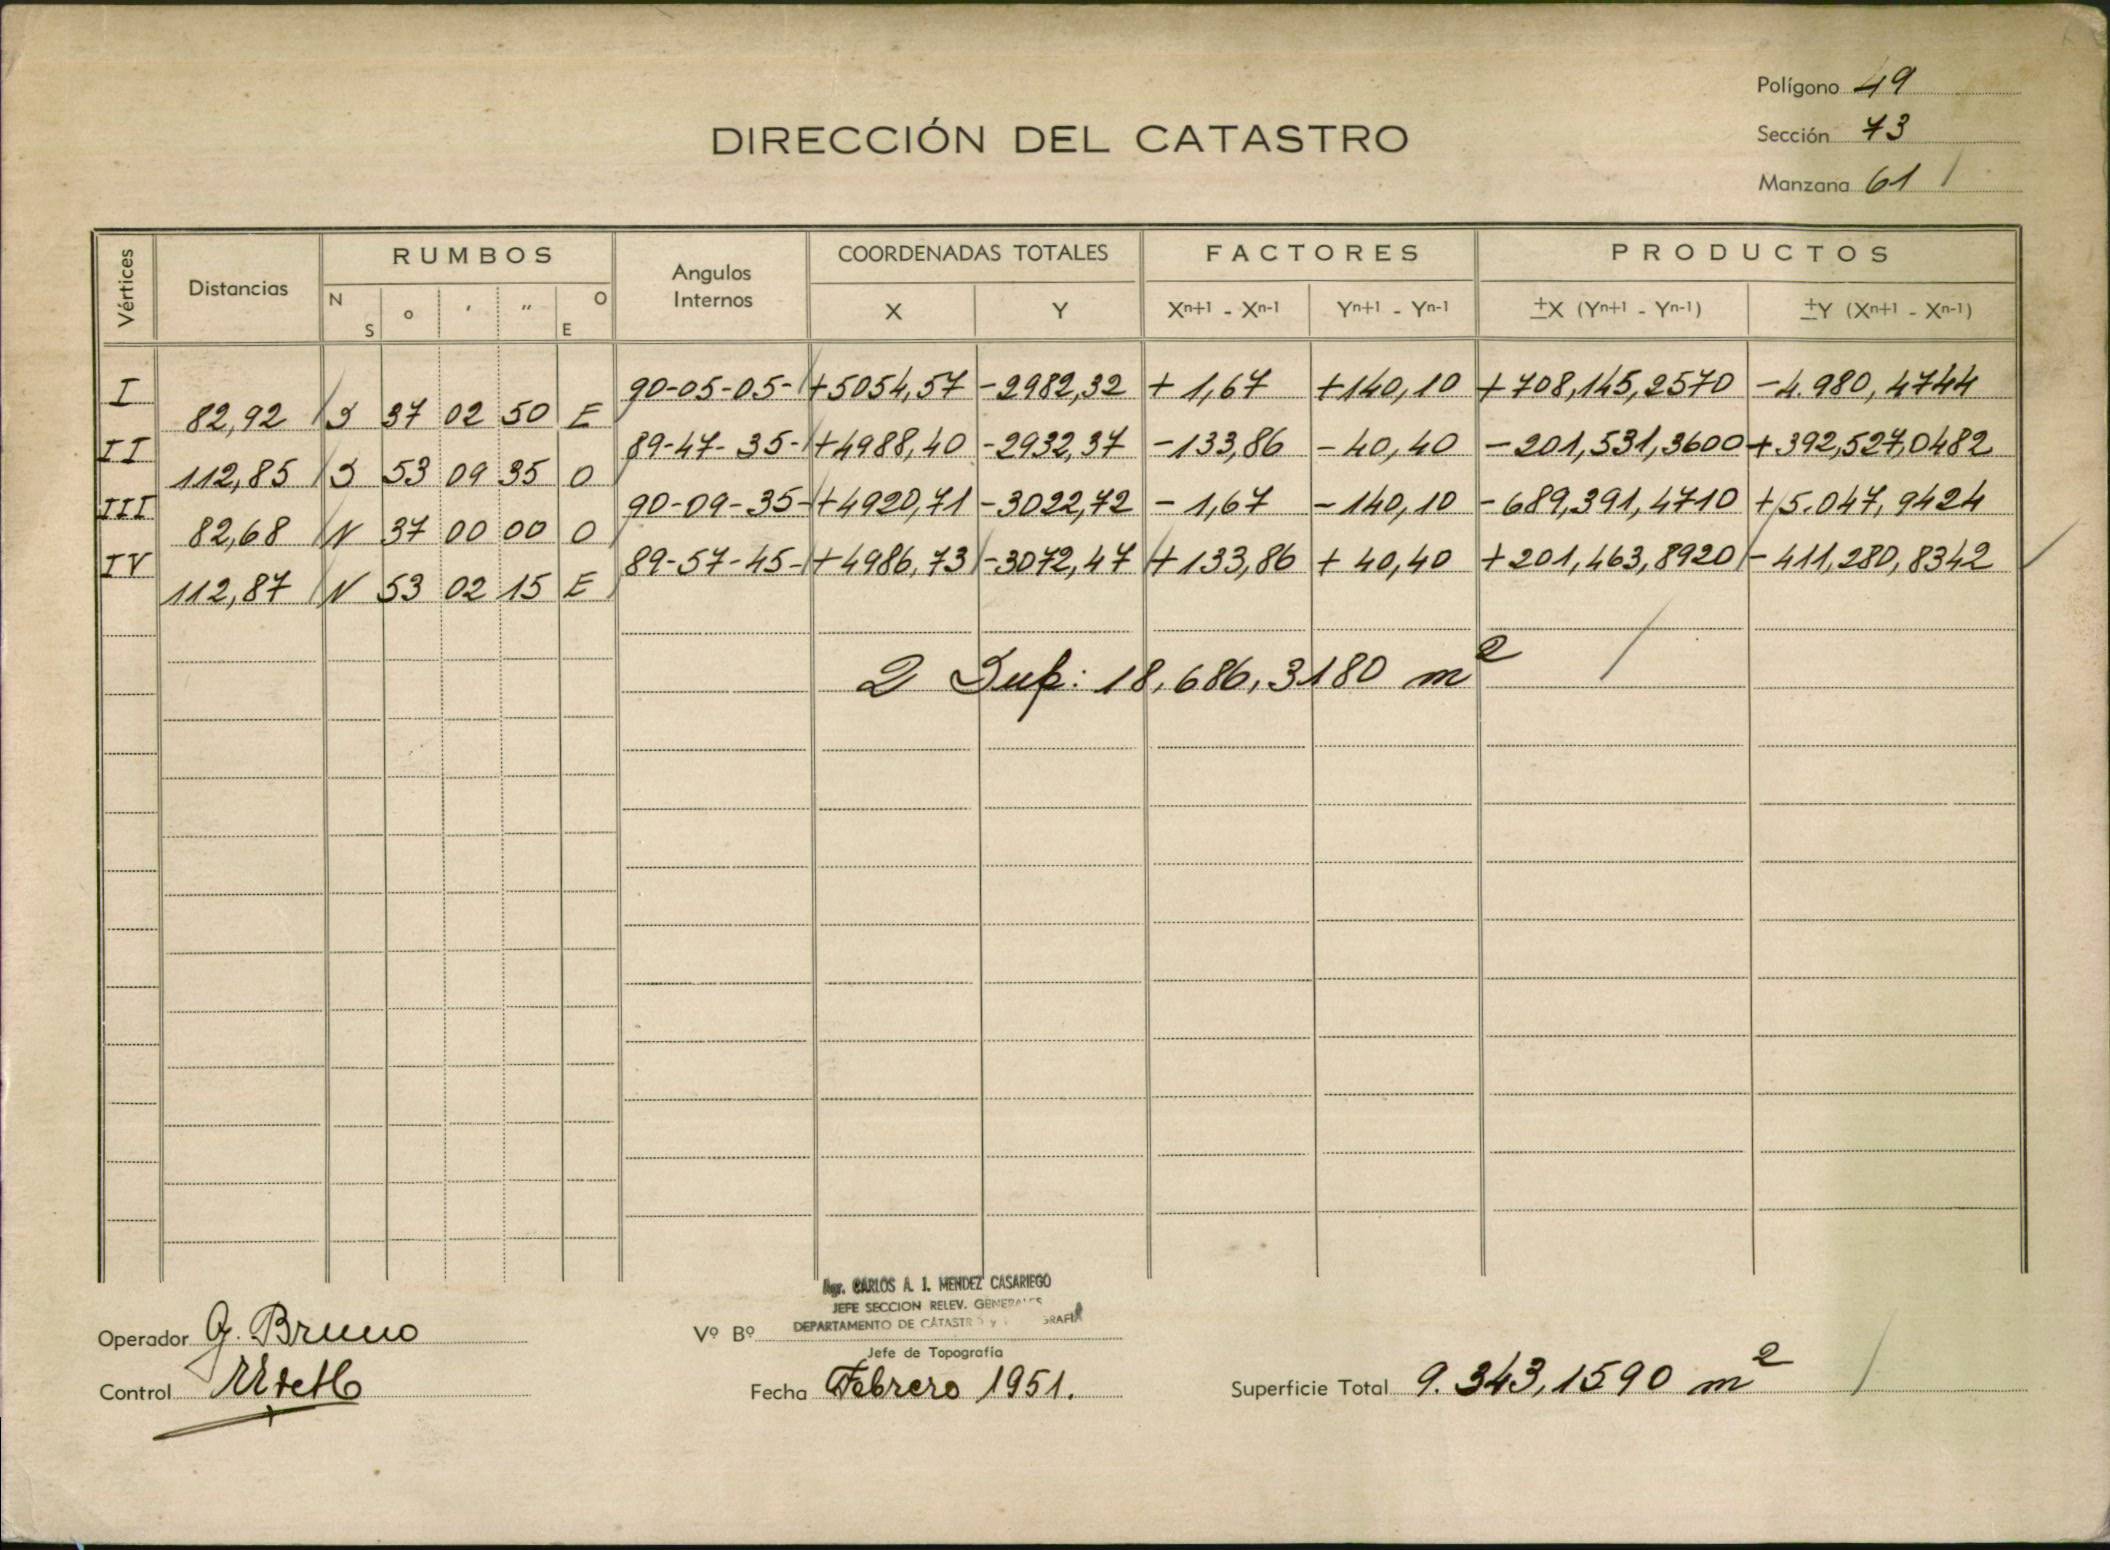 Polígono 49
DIRECCIÓN DEL CATASTRO
Sección 73
Manzana 61 /
Vértices Distancias RUMBOS Angulos Internos COORDENADAS TOTALES FACTORES PRODUCTOS
N S o ' " O E X Y Xn+1 - Xn-1 Yn+1 - Yn-1 ±X (Yn+1 - Yn-1) ±Y (Xn+1 - Xn-1)
I 90-05-05- +5054,57 -2982,32 + 1,67 +140,10 +708,145,2570 -4.980,4744
82,92 S 37 02 50 E
II 89-47-35- +4988,40 -2932,37 -133,86 -40,40 -201,531,3600 +392,527,0482
112,85 S 53 09 35 O
III 90-09-35- +4920,71 -3022,72 - 1,67 -140,10 -689,391,4710 +5.047,9424
82,68 N 37 00 00 O
IV 89-57-45- +4986,73 -3072,47 +133,86 + 40,40 +201,463,8920 -411,280,8342
112,87 N 53 02 15 E
2 Sup: 18,686,3180 m²
Agr. CARLOS A. J. MENDEZ CASARIEGO
JEFE SECCION RELEV. GENERALES
DEPARTAMENTO DE CATASTRO y
Operador G. Bruno
Vº Bº
Jefe de Topografía
Control
Fecha Febrero 1951.
Superficie Total 9.343,1590 m² /